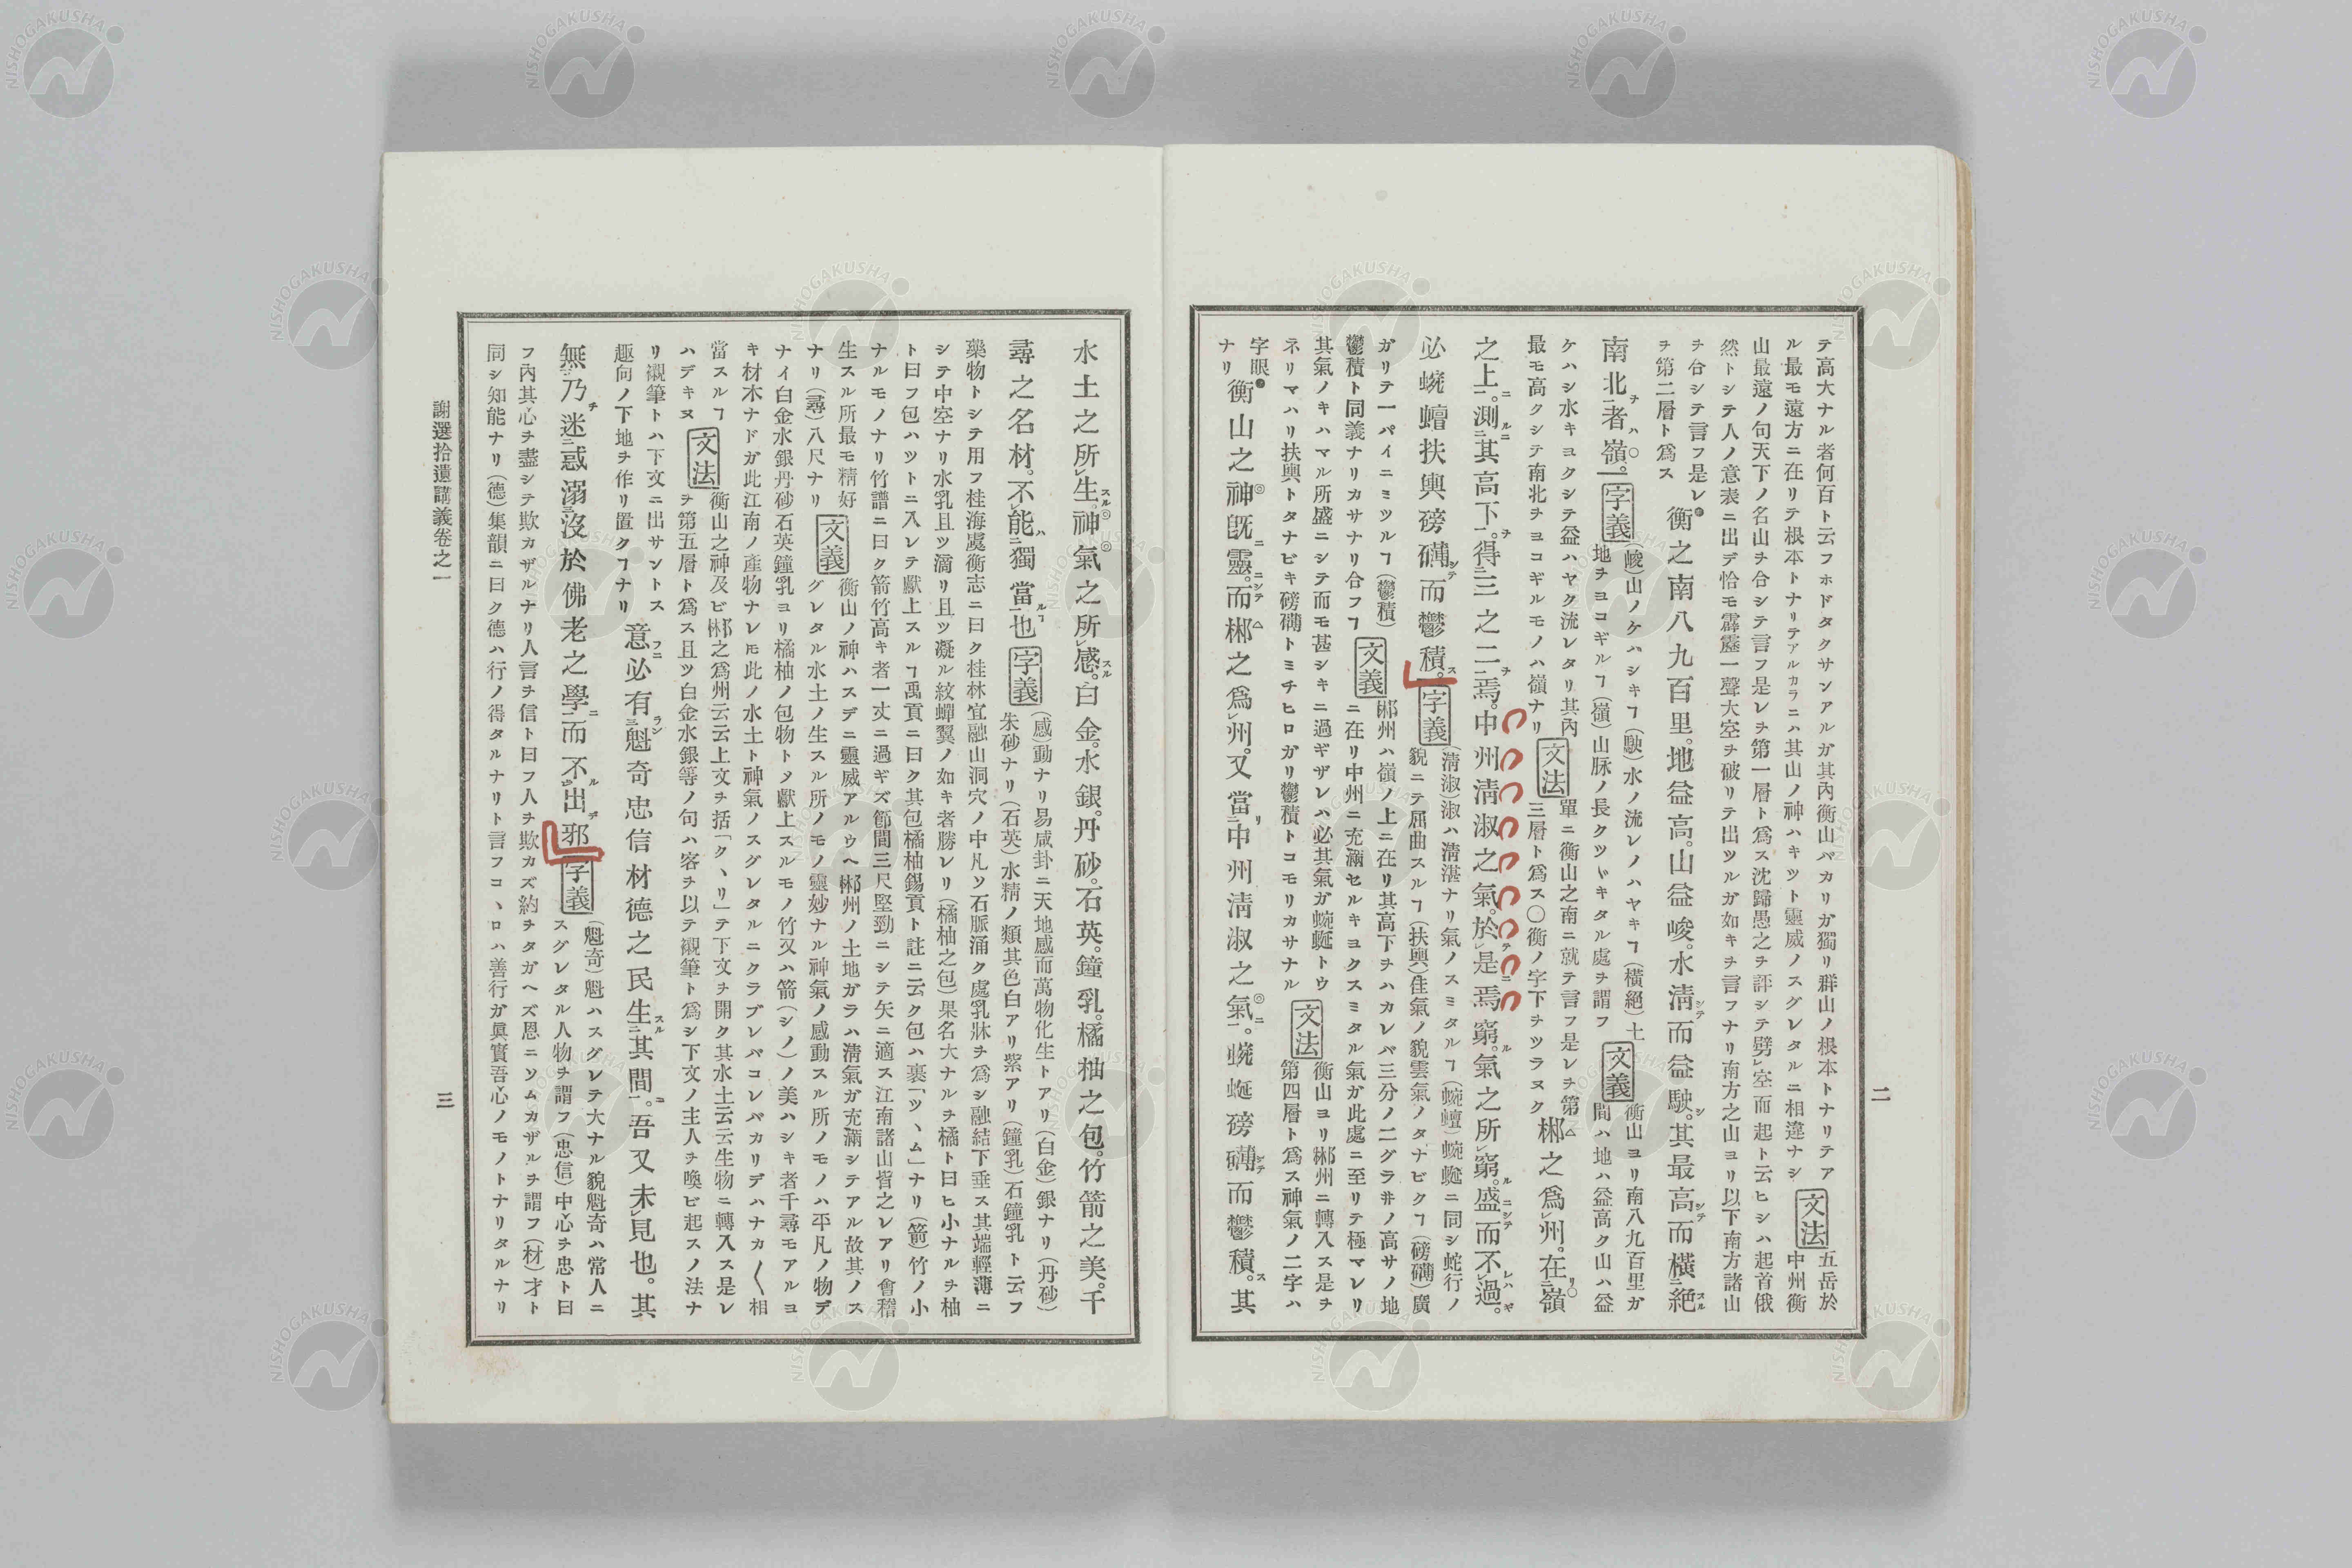 テ高大ナル者何百ト云フホドタクサンアルガ其內衡山バカリガ獨リ群山ノ根本トナリテア
ル最モ遠方ニ在リテ根本トナリテアルカラニハ其山ノ神ハキツト靈威ノスグレタルニ相違ナシ
文法
五岳於
中州衡
山最遠ノ句天下ノ名山ヲ合シテ言フ是レヲ第一層ト爲ス沈歸愚之ヲ評シテ劈空而起ト云ヒシハ起首俄
然トシテ人ノ意表ニ出デ恰モ霹靂一聲大空ヲ破リテ出ツルガ如キヲ言フナリ南方之山ヨリ以下南方諸山
ヲ合シテ言フ是レ
ヲ第二層ト爲ス
衡之南八九百里。地益高。山益峻。水淸而益駛。其最高而橫絕
南北者嶺。
字義
(峻)山ノケハシキヿ(駛)水ノ流レノハヤキヿ(橫絕)土
地ヲヨコギルヿ(嶺)山脉ノ長クツヾキタル處ヲ謂フ
文義
衡山ヨリ南八九百里ガ
間ハ地ハ益高ク山ハ益
ケハシ水キヨクシテ益ハヤク流レタリ其內
最モ高クシテ南北ヲヨコギルモノハ嶺ナリ
文法
單ニ衡山之南ニ就テ言フ是レヲ第
三層ト爲ス〇衡ノ字下ヲツラヌク
郴之爲州。在嶺
之上。測其高下。得三之二焉。中州淸淑之氣。於是焉窮。氣之所窮。盛而不過。
必蜿蟺扶輿磅礴而鬱積。
字義
(淸淑)淑ハ淸湛ナリ氣ノスミタルヿ(蜿蟺)蜿蜒ニ同シ蛇行ノ
貌ニテ屈曲スルヿ(扶輿)佳氣ノ貌雲氣ノタナビクヿ(磅礴)廣
ガリテ一パイニミツルヿ(鬱積)
鬱積ト同義ナリカサナリ合フヿ
文義
郴州ハ嶺ノ上ニ在リ其高下ヲハカレバ三分ノ二グラ井ノ高サノ地
ニ在リ中州ニ充滿セルキヨクスミタル氣ガ此處ニ至リテ極マレリ
其氣ノキハマル所盛ニシテ而モ甚シキニ過ギザレハ必其氣ガ蜿蜒トウ
ネリマハリ扶輿トタナビキ磅礴トミチヒロガリ鬱積トコモリカサナル
文法
衡山ヨリ郴州ニ轉入ス是ヲ
第四層ト爲ス神氣ノ二字ハ
字眼
ナリ
衡山之神旣靈。而郴之爲州。又當中州淸淑之氣。蜿蜒磅礴而鬱積。其
二
水土之所生。神氣之所感。白金。水銀。丹砂。石英。鐘乳。橘柚之包。竹箭之美。千
尋之名材。不能獨當也
字義
(感)動ナリ易咸卦ニ天地感而萬物化生トアリ(白金)銀ナリ(丹砂)
朱砂ナリ(石英)水精ノ類其色白アリ紫アリ(鐘乳)石鐘乳ト云フ
藥物トシテ用フ桂海虞衡志ニ曰ク桂林宜融山洞穴ノ中凡ソ石脈涌ク處乳牀ヲ爲シ融結下垂ス其端輕薄ニ
シテ中空ナリ水乳且ツ滴リ且ツ凝ル紋蟬翼ノ如キ者勝レリ(橘柚之包)果名大ナルヲ橘ト曰ヒ小ナルヲ柚
ト曰フ包ハツトニ入レテ獻上スルヿ禹貢ニ曰ク其包橘柚錫貢ト註ニ云ク包ハ裹「ツヽム」ナリ(箭)竹ノ小
ナルモノナリ竹譜ニ曰ク箭竹高キ者一丈ニ過ギズ節間三尺堅勁ニシテ矢ニ適ス江南諸山皆之レアリ會稽
生スル所最モ精好
ナリ(尋)八尺ナリ
文義
衡山ノ神ハスデニ靈威アルウヘ郴州ノ土地ガラハ淸氣ガ充滿シテアル故其ノス
グレタル水土ノ生スル所ノモノ靈妙ナル神氣ノ感動スル所ノモノハ平凡ノ物デ
ナイ白金水銀丹砂石英鐘乳ヨリ橘柚ノ包物トヌ獻上スルモノ竹又ハ箭(シノ)ノ美ハシキ者千尋モアルヨ
キ材木ナドガ此江南ノ產物ナレモ此ノ水土ト神氣ノスグレタルニクラブレバコレバカリデハナカ〱相
當スルヿ
ハデキヌ
文法
衡山之神及ビ郴之爲州云云上文ヲ括「クヽリ」テ下文ヲ開ク其水土云云生物ニ轉入ス是レ
ヲ第五層ト爲ス且ツ白金水銀等ノ句ハ客ヲ以テ襯筆ト爲シ下文ノ主人ヲ喚ビ起スノ法ナ
リ襯筆トハ下文ニ出サントス
趣向ノ下地ヲ作リ置クヿナリ
意必有魁奇忠信材德之民生其間。吾又未見也。其
無乃迷惑溺沒於佛老之學而不出邪
字義
(魁奇)魁ハスグレテ大ナル貌魁奇ハ常人ニ
スグレタル人物ヲ謂フ(忠信)中心ヲ忠ト曰
フ內其心ヲ盡シテ欺カザルナリ人言ヲ信ト曰フ人ヲ欺カズ約ヲタガヘズ恩ニソムカザルヲ謂フ(材)才ト
同シ知能ナリ(德)集韻ニ曰ク德ハ行ノ得タルナリト言フコヽロハ善行ガ眞實吾心ノモノトナリタルナリ
謝選拾遺講義卷之一
三
NISHOGAKUSHA